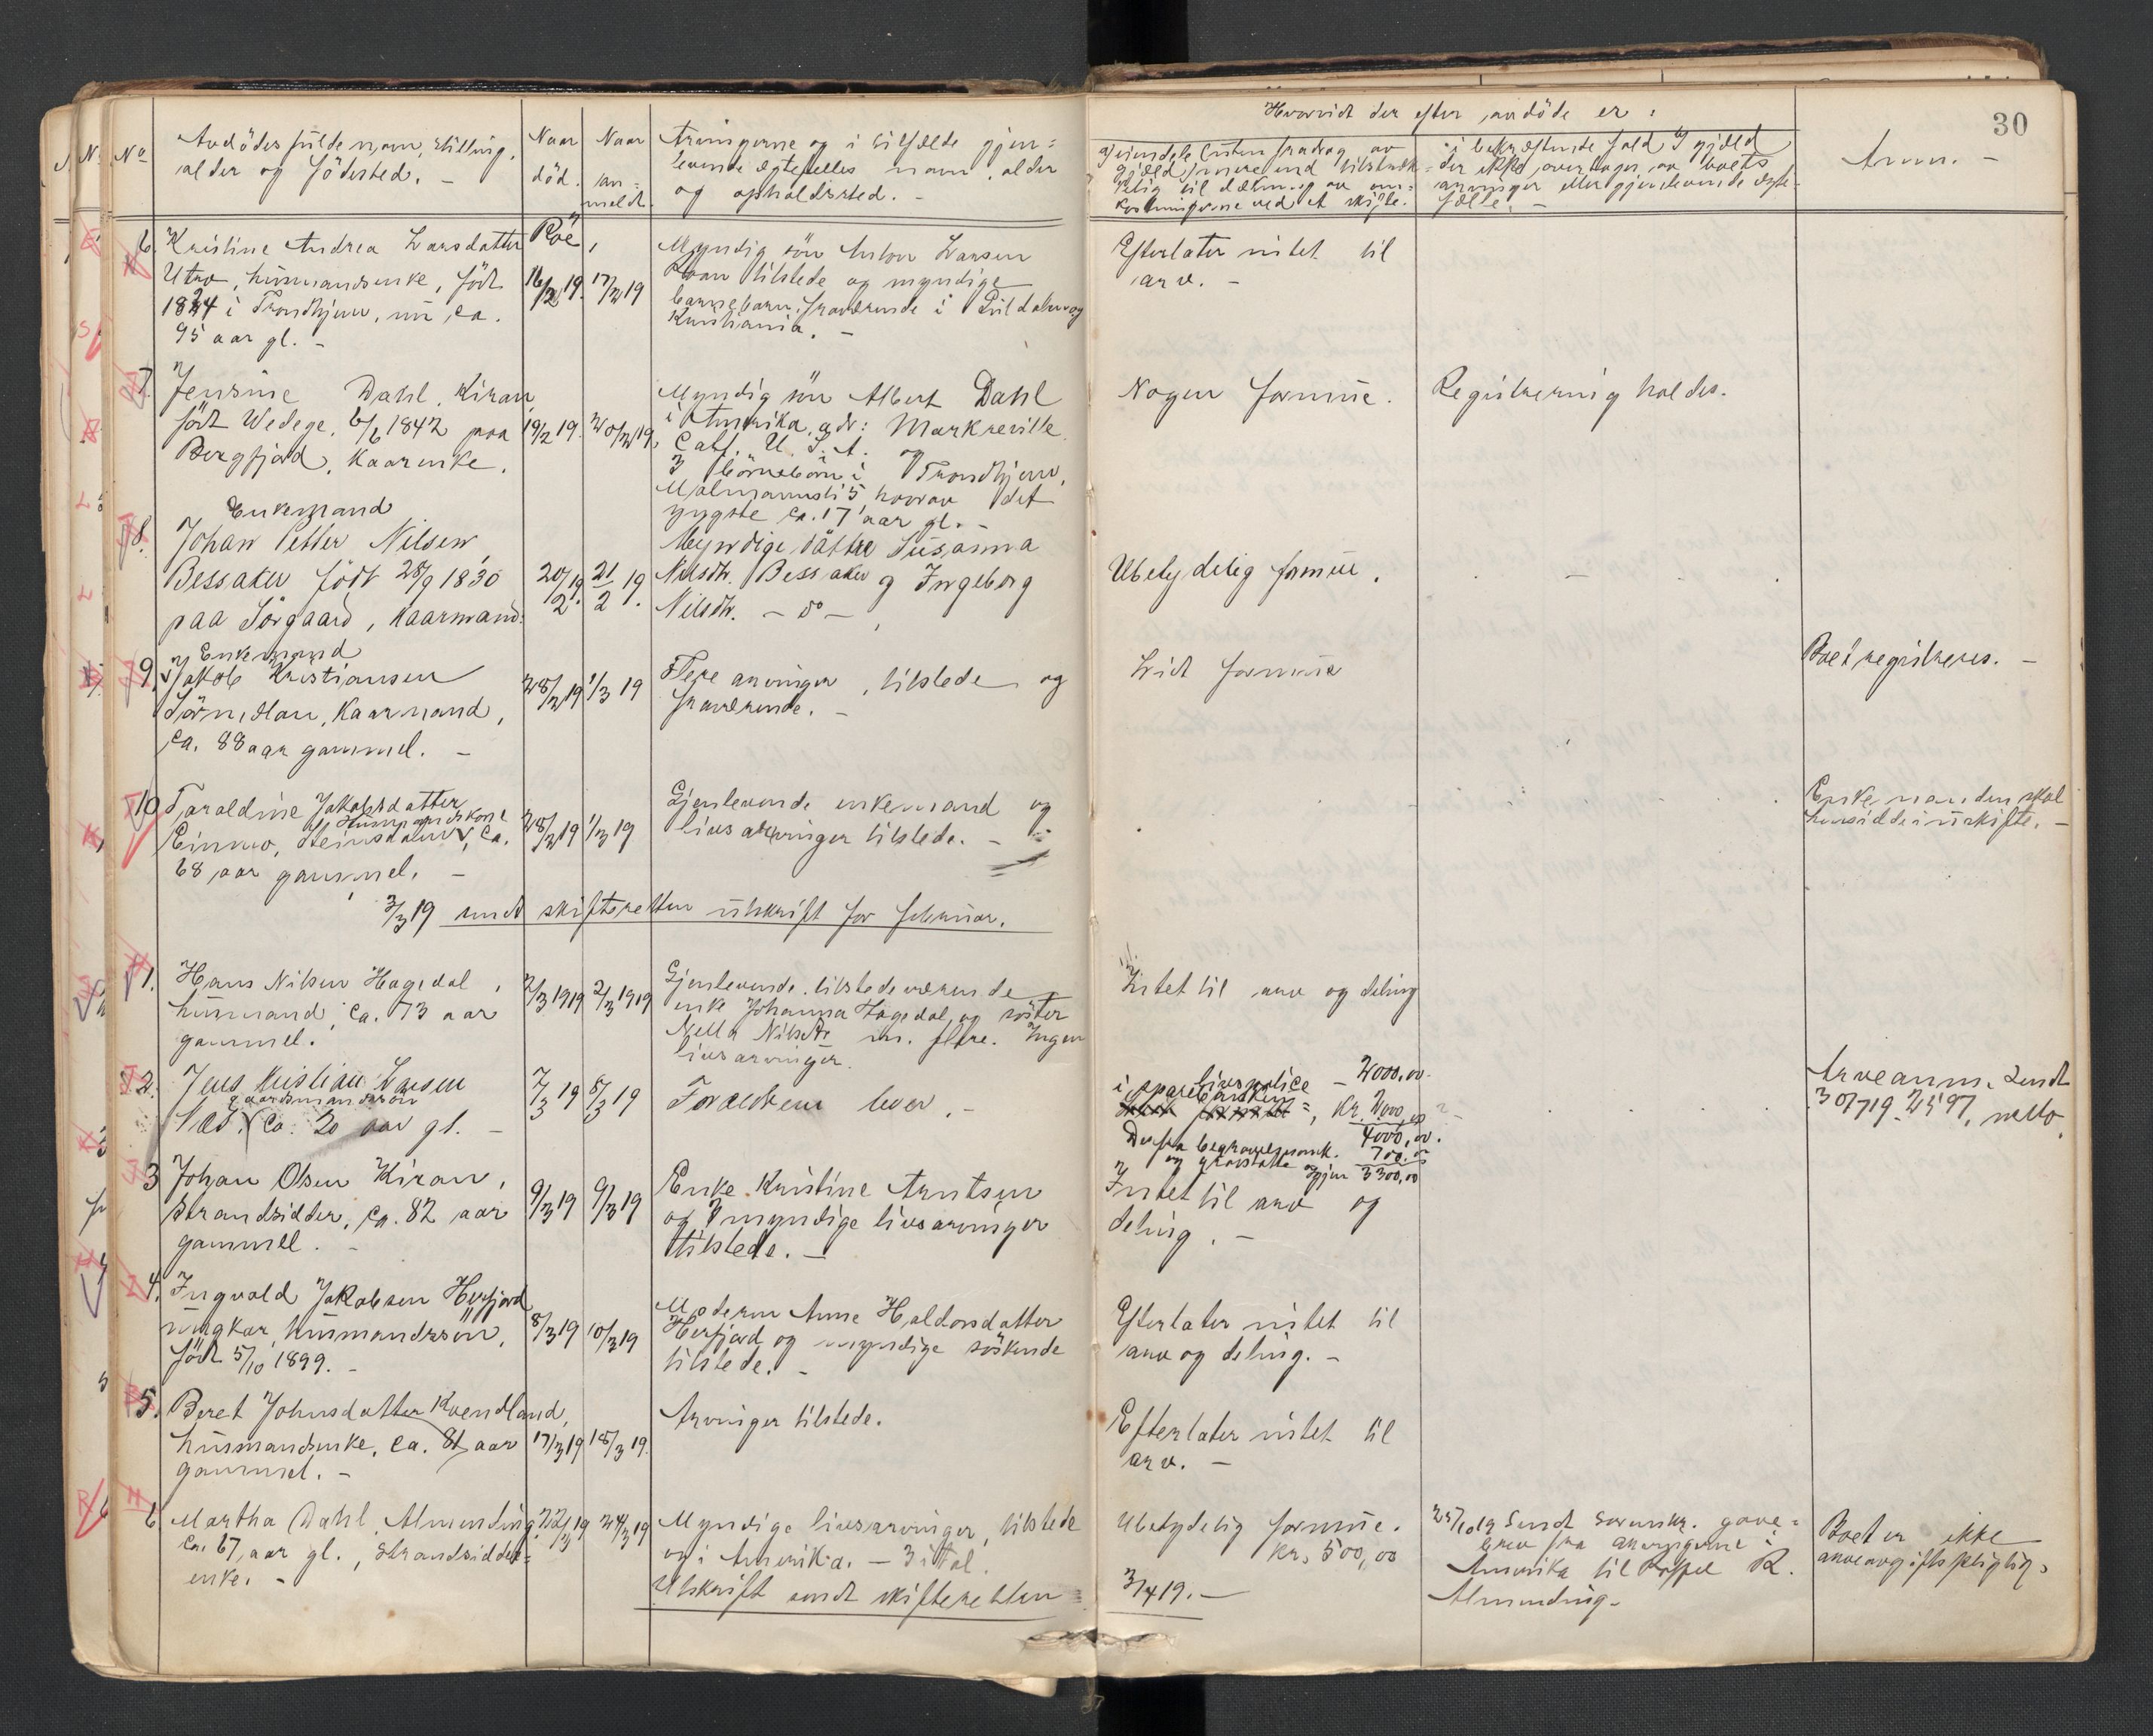 No
Avdödes fulde navn, stilling,
alder og födested. –
Naar
död.
Naar
an-
meldt.
Arvingerne og i tilfælde gjen-
levende egtefelles navn, alder
og opholdssted. –
Hvorvidt der efter avdöde er:
30
gjæld
i bekræftende fald
Anm. –
6. Kristine Andrea Larsdatter
Utro, husmandsenke, födt
1824 i Trondhjem, nu ca.
95 aar gl. –
16/2 19.
17/2 19
Myndig sön Anton Larsen
tilstede og myndige
barnebarn, fraværende i
Kristiania. –
Efterlater intet til
arv. –
7. Jensine Dahl, Kiran,
födt Wedege, 6/6 1842 paa
Bergfjord, Kaarenke.
19/2 19.
20/2 19,
Myndig sön Albert Dahl
i Amerika, adr: Markreville
Calf. U. S. A. og
3 börnebörn i Trondhjem,
hvorav det
yngste ca. 17 aar gl. –
Nogen formue.
Registrering holdes.
Enkemand
8. Johan Petter Nilsen,
Bessaker födt 28/9 1830
paa Sörgaard, Kaarmand.
20/2 19.
21/2 19.
Myndige döttre Susanna
Nilsdtr. Bessaker og Ingeborg
Nilsdtr. – do –
Ubetydelig formue.
Enkemand
9. Jakob Kristiansen
Kaarmand,
ca. 88 aar gammel. –
28/2 19
1/3 19
Flere arvinger, tilstede og
fraværende. –
Lidt formue
Boet registreres. –
10 Taraldine Jakobsdatter
Husmandskone
Einmo, Steinsdalen, ca.
68 aar gammel. –
28/2 19
1/3 19
Gjenlevende enkemand og
livsarvinger tilstede. –
Enkemanden skal
hensidde i uskifte. –
3/3 19 sendt skifteretten utskrift for februar.
1. Hans Nilsen Hagedal,
husmand, ca. 73 aar
gammel.
2/3 1919
2/3 1919
Gjenlevende tilstedeværende
enke Johanna Hagedal, og söster
Nilsdtr m. flere. Ingen
livsarvinger.
Intet til arv og deling
2. Jens Kristian Larsen
gaardsmandssön
ca. 20 aar gl. –
7/3 19
8/3 19
Forældrene lever. –
livspolice – 2000,00.
i sparebanken
kr. 2000,00
4000,00.
Derfra begravelsesomk. 700.00
og gravstötte
igjen 3300,00
Arveanm. sendt
30/7 19. 2597, netto.
3 Johan Olsen Kiran,
strandsidder, ca. 82 aar
gammel. –
9/3 19
9/3 19
Enke Kristine Arntsen
og 7 myndige livsarvinger
tilstede. –
Intet til arv og
deling. –
4. Ingvald Jakobsen Herfjord
ungkar, husmandssön,
födt 5/10 1899. –
8/3 19
10/3 19
Moderen Anne Haldorsdatter
Herfjord og myndige söskende
tilstede. –
Efterlater intet til
arv og deling. –
5. Beret Johnsdatter Kvendland,
husmandsenke, ca. 81 aar
gammel. –
17/3 19
18/3 19.
Arvinger tilstede.
Efterlater intet til
arv. –
6 Martha Dahl, Almenning,
ca. 67 aar gl., strandsidder-
enke. –
22/3 19
24/3 19
Myndige livsarvinger, tilstede
og i Amerika. – 3 i tal.
Ubetydelig formue.
kr. 500,00
sendt gave-
brev fra arvingerne i
Amerika til R.
Almenning.
Boet er ikke
arveavgiftspligtig.
Utskrift sendt skifteretten
3/4 19. –